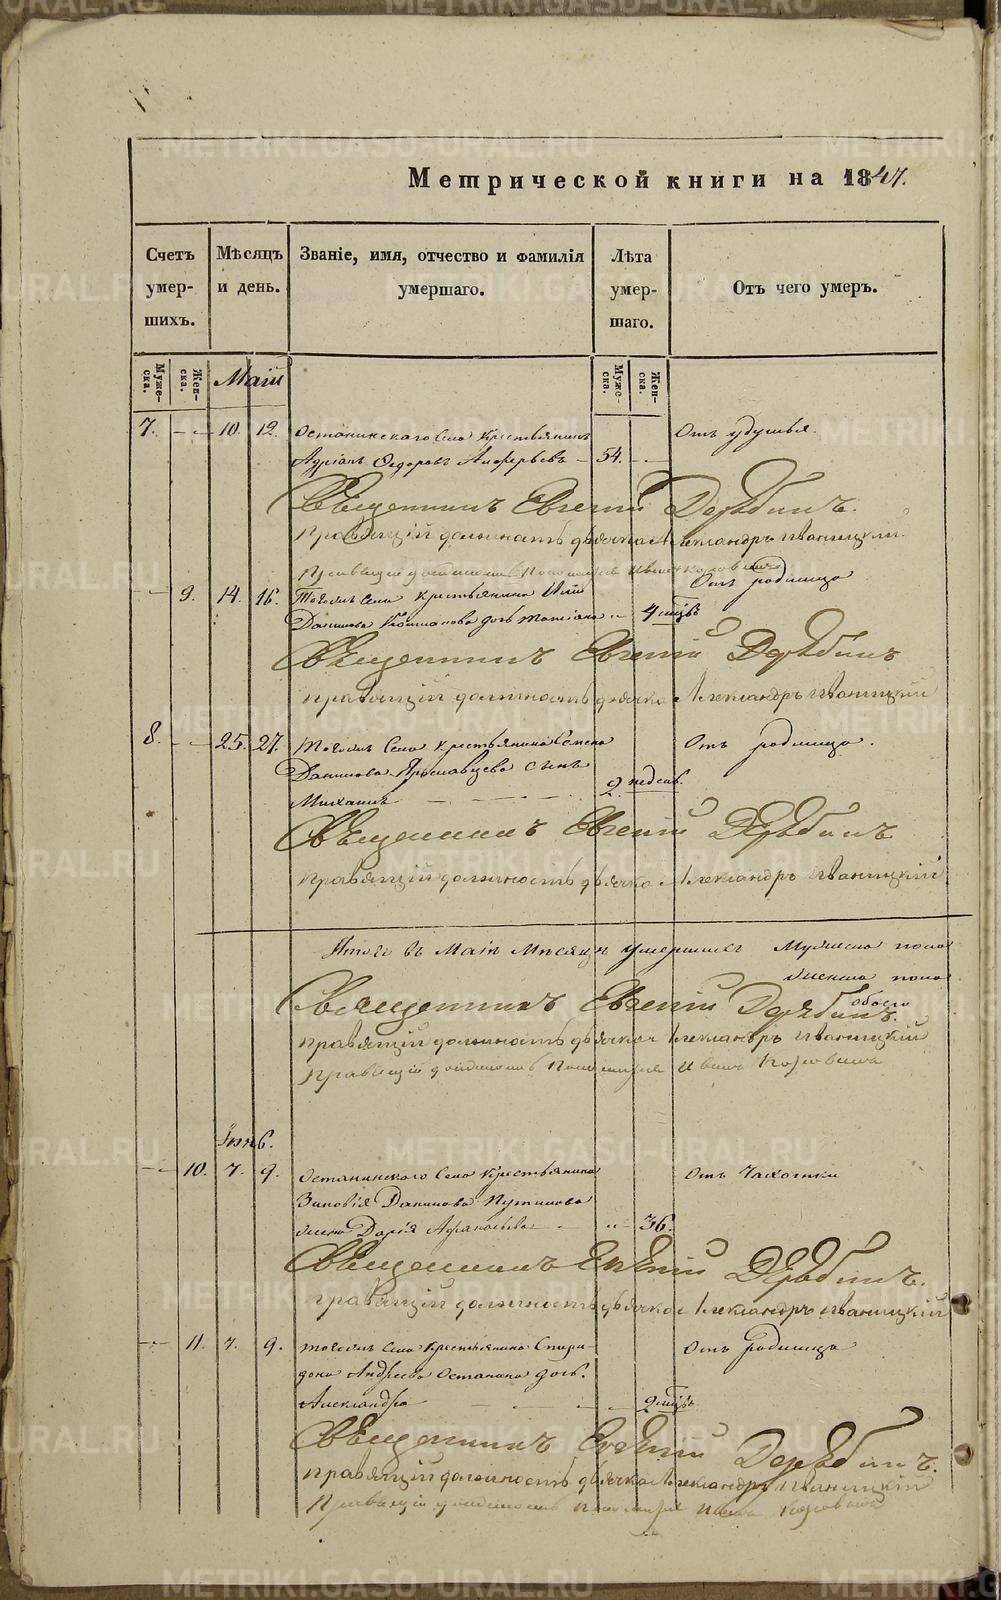 Метрической книги на 1847.
Счетъ умер-шихъ.
Мѣсяцъ и день.
Званіе, имя, отчество и фамилія умершаго.
Лѣта умер-шаго.
Отъ чего умеръ.
Муже-ска.
Жен-ска.
Маій
Муже-ска.
Жен-ска.
7. 10. 12. Останинскаго Села Крестьянинъ
Отъ удушья.
Адріанъ Ѳедоровъ 54.
Священникъ Евгеній Дерябинъ.
Правящій должность дьячка Александръ Иваницкій
Правящій должность Пономаря Иванъ
9. 14. 16. Тогожъ Села Крестьянина
Отъ родимца
Данилова дочь 4
Священникъ Евгеній Дерябинъ
Правящій должность дьячка Александръ Иваницкій
8. 25. 27. Тогожъ Села Крестьянина Семена
Отъ родимца.
Данилова Ярославцева сынъ
Михаилъ 2 недель.
Священникъ Евгеній Дерябинъ
Правящій должность дьячка Александръ Иваницкій
Итого въ Маіѣ Мѣсяцѣ умершихъ Мужеска пола
Женска пола
обоего
Священникъ Евгеній Дерябинъ.
Правящій должность дьячка Александръ Иваницкій
Правящій должность Пономаря Иванъ
Іюнь.
10. 7. 9. Останинскаго Села Крестьянина
Отъ Чахотки
Зиновія Данилова Путилова
жена Дарія 36.
Священникъ Евгеній Дерябинъ.
Правящій должность дьячка Александръ Иваницкій
11. 7. 9. Тогожъ Села Крестьянина Спири-
Отъ родимца
дона Андреева Останина дочь.
Александра 2
Священникъ Евгеній Дерябинъ.
Правящій должность дьячка Александръ Иваницкій
Правящій должность Пономаря Иванъ
METRIKI.GASO-URAL.RU